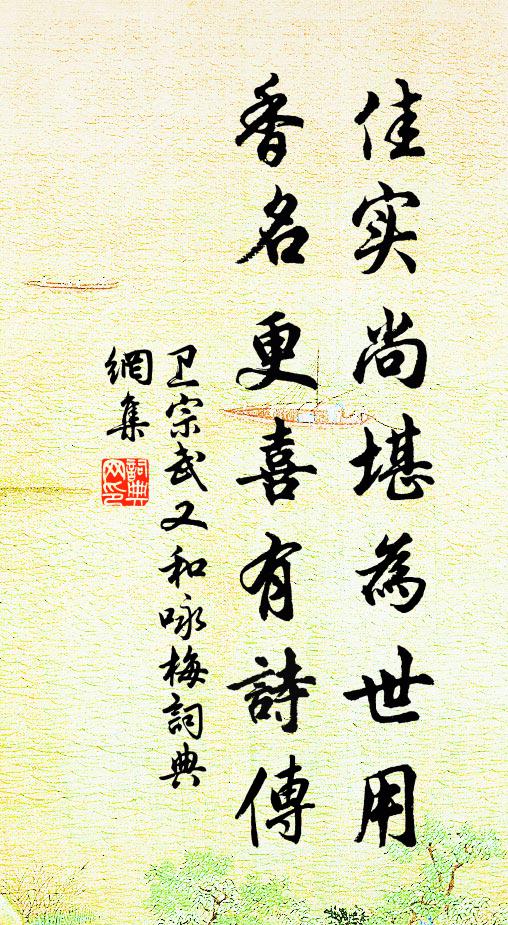 佳实尚堪為世用
香名更喜有詩傳
卫宗武又和咏梅詞典
網集
詞典
网印